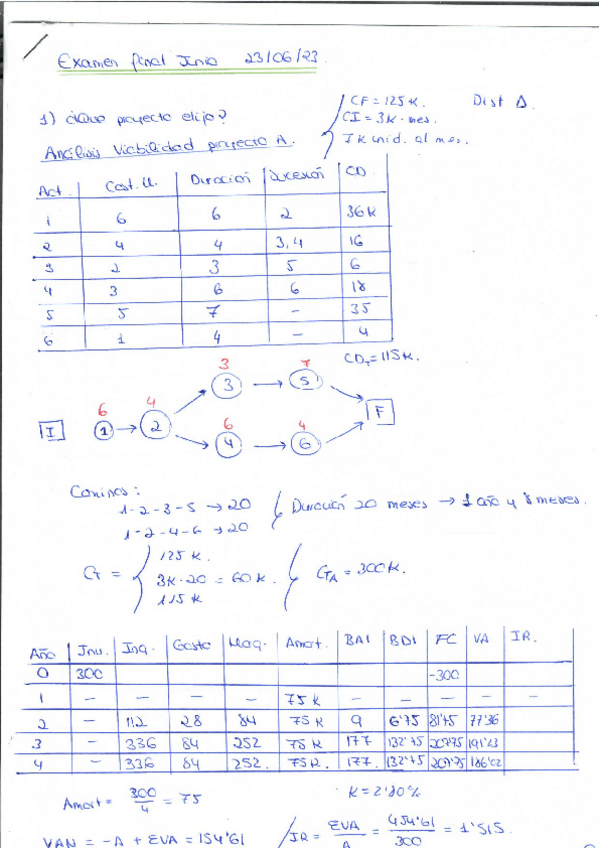 Examen final Junio 23/06/23.
1) ¿Que proyecto elijo?
CF = 125 K.
CI = 3K · mes.
7 K unid. al mes.
Dist Δ.
Análisis Viabilidad proyecto A.
Act. Cost. U. Duración Sucesión CD
1 6 6 2 36K
2 4 4 3,4 16
3 2 3 5 6
4 3 6 6 18
5 5 7 - 35
6 1 4 - 4
CD_T = 115 K.
3 7
3 → 5
6 4
I 1 → 2 F
6 4
4 → 6
Caminos:
1-2-3-5 → 20
1-2-4-6 → 20
Duración 20 meses → 1 año y 8 meses.
CT =
125 K.
3K · 20 = 60 K.
115 K
CT_A = 300 K.
Año Inv. Ing. Gasto Maq. Amort. BAI BDI FC VA IR.
0 300 -300
1 - - - - 75 K - - - - -
2 - 112 28 84 75 K 9 6'75 81'75 77'36
3 - 336 84 252 75 K 177 132'75 207'75 191'23
4 - 336 84 252. 75 K. 177. 132'75 207'75 186'02
Amort = 300/4 = 75
K = 2'80%
VAN = -A + EVA = 154'61
IR = EVA/A = 454'61/300 = 1'515.